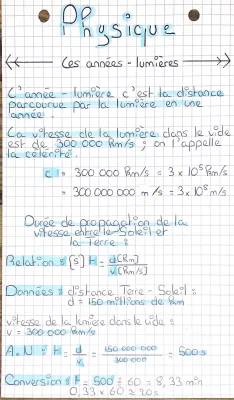 Physique
Les années-lumières
L'année-lumière c'est la distance
parcourue par la lumière en une
année.
La vitesse de la lumière dans le vide
est de 300 000 Km/s ; on l'appelle
la célérité.
C = 300 000 Km/s = 3 × 10⁵ Km/s
= 300 000 000 m/s = 3 × 10⁸ m/s
Durée de propagation de la
vitesse entre le Soleil et
la Terre :
Relation : [s] t = d [Km] / v [Km/s]
Données : distance Terre - Soleil :
d = 150 millions de Km
vitesse de la lumière dans le vide :
v = 300 000 Km/s
A.N : t = d/v = 150 000 000 / 300 000 = 500 s
Conversion : t = 500 ÷ 60 = 8,33 min
0,33 × 60 ≈ 20 s